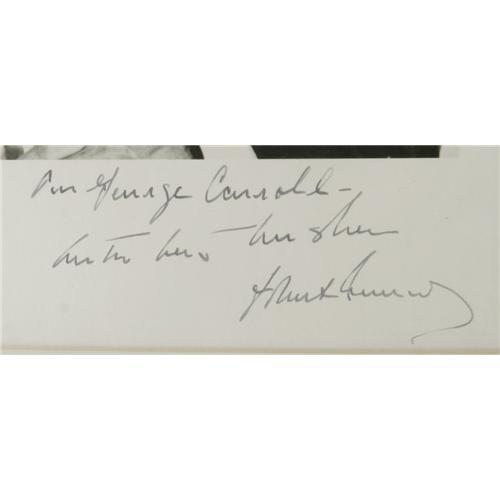 For George Carroll -
with best wishes